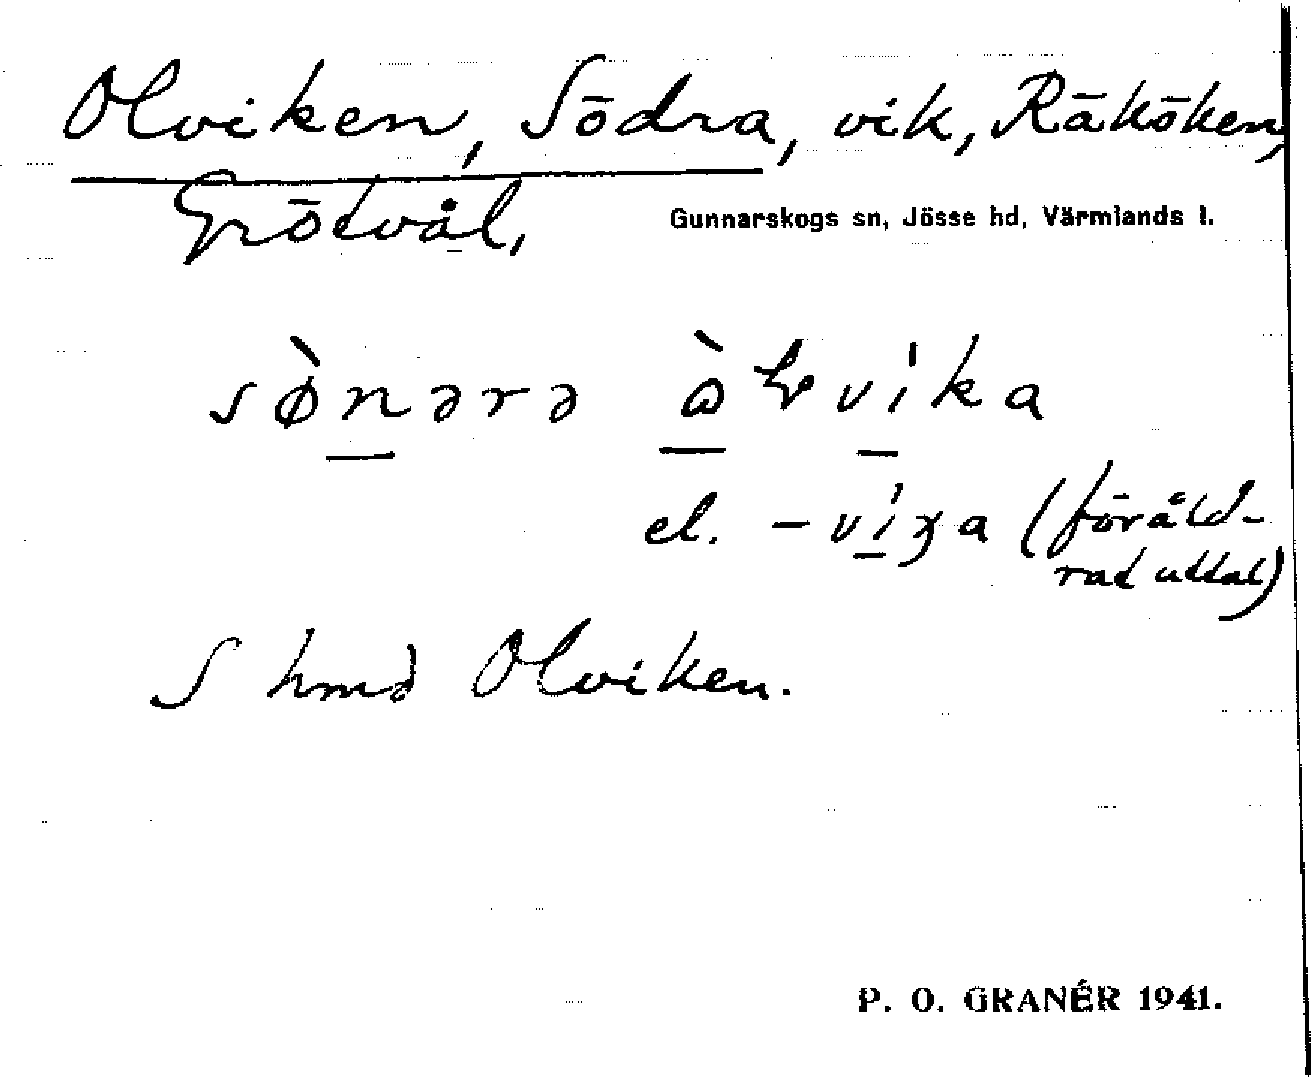 Olviken, Södra, vik, Räköken,
Grötvål,
Gunnarskogs sn, Jösse hd, Värmlands l.
sø̀nərə ɷ̀ɽvíka
el. -víχa (föråld-
rat uttal)
S hmd Olviken.
P. O. GRANÉR 1941.